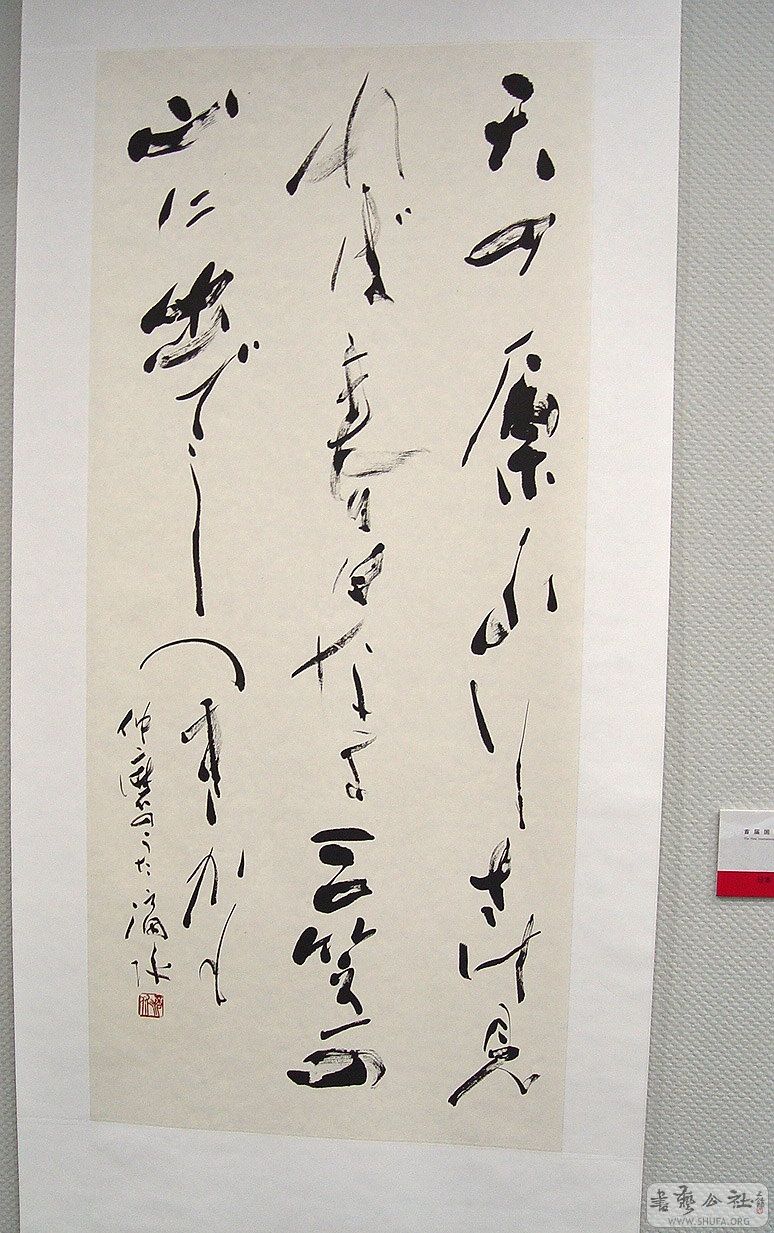 天の原ふりさけ見
れば春日なる三笠の
山に出でし月かも
仲麿のうた
首届国
書藝公社
WWW.SHUFA.ORG